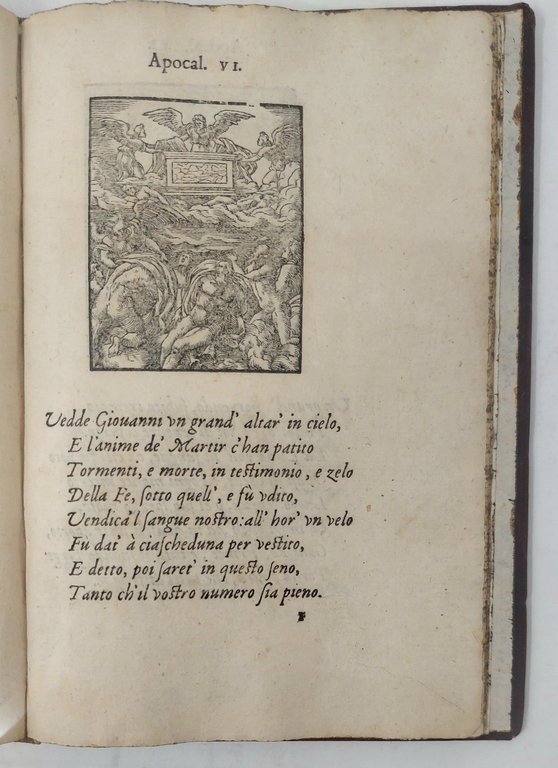 Apocal. VI.
Vedde Giouanni vn grand' altar' in cielo,
E l'anime de' Martir c'han patito
Tormenti, e morte, in testimonio, e zelo
Della Fe, sotto quell', e fù vdito,
Vendica'l sangue nostro: all' hor' vn velo
Fù dat' à ciascheduna per vestito,
E detto, poi saret' in questo seno,
Tanto ch'il vostro numero sia pieno.
F